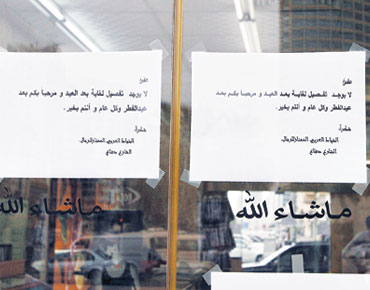 عفواً
لا يوجد تفصيل لغاية بعد العيد و مرحبا بكم بعد
عيدالفطر وكل عام و أنتم بخير.
شكراً،
الخياط العربي الممتاز للرجال
ماشاء الله
عفواً
لا يوجد تفصيل لغاية بعد العيد و مرحبا بكم بعد
عيدالفطر وكل عام و أنتم بخير.
شكراً،
الخياط العربي الممتاز للرجال
ماشاء الله